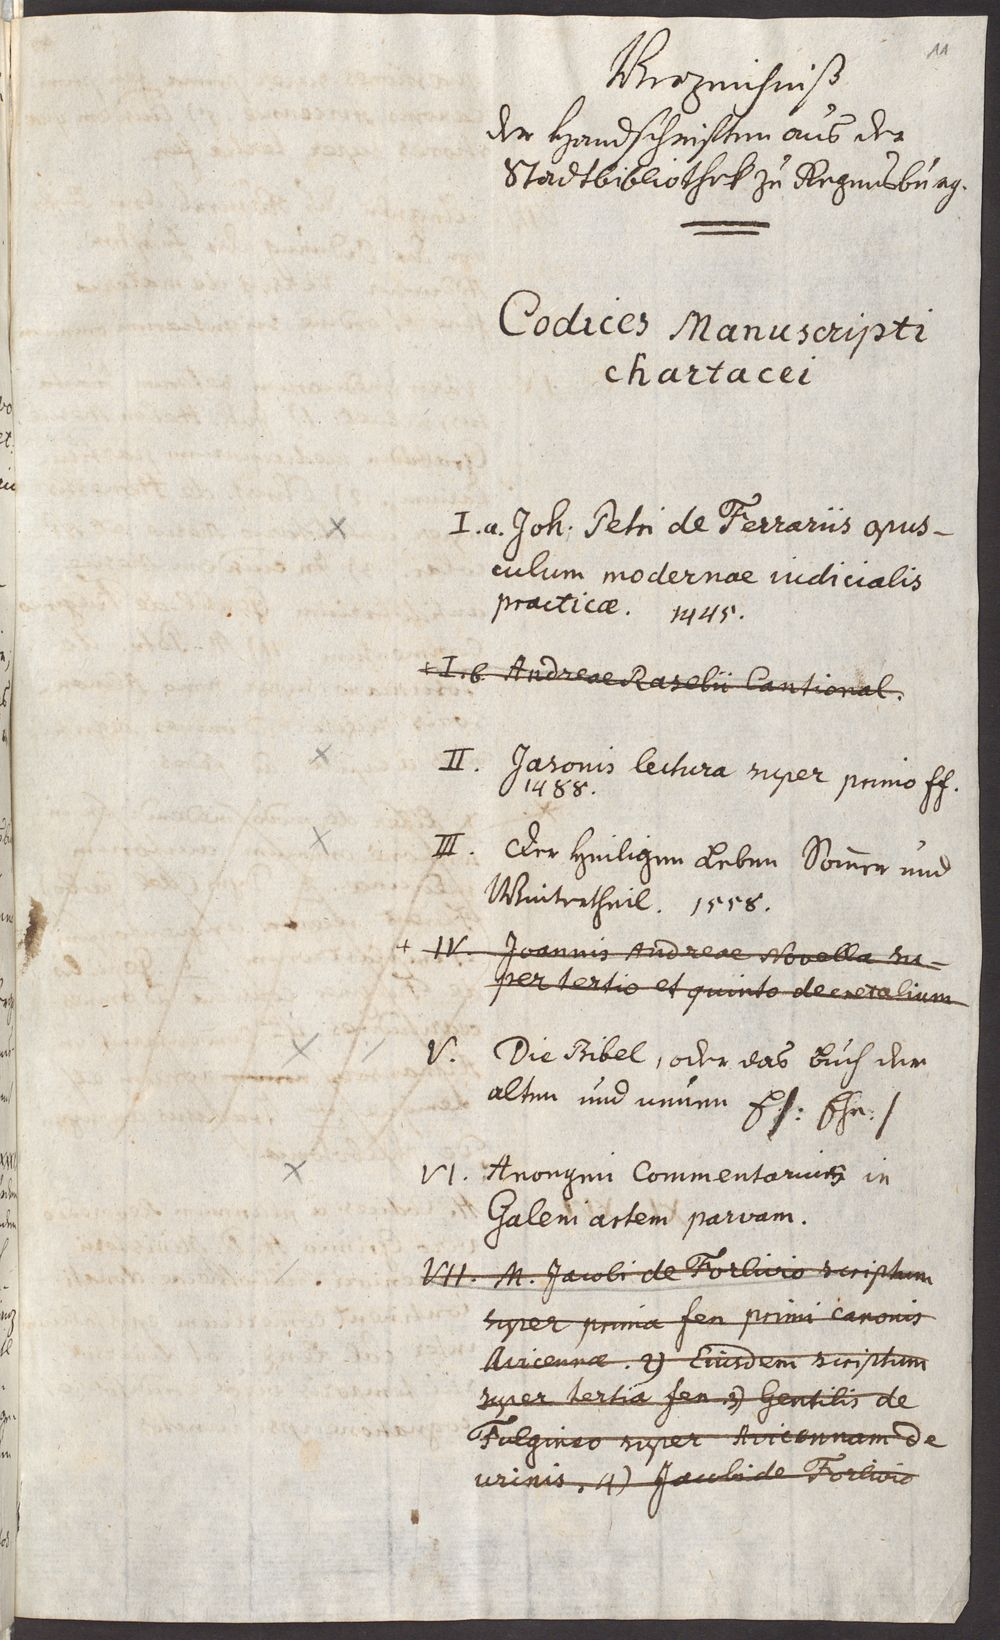 11
Verzeichniß
der Handschriften aus der
Stadtbibliothek zu Regensburg.
Codices Manuscripti
chartacei
I.a. Joh. Petri de Ferrariis opus-
culum modernae iudicialis
practicæ. 1445.
+ I.b Andreae Raselii Cantional.
II. Jasonis lectura super primo ff.
1488.
III. Der Heiligen Leben Som̄er und
Wintertheil. 1558.
+ IV. Joannis Andreae Novella su-
per tertio et quinto decretalium
V. Die Bibel, oder das Buch der
alten und neuen
VI. Anonymi Commentarius in
Galeni artem parvam.
VII. M. Jacobi de Forlivio scriptum
super prima fen primi canonis
Avicennæ. 2) Eiusdem scriptum
super tertia fen 3) Gentilis de
Fulgineo super Avicennam de
urinis. 4) Jacobi de Forlivio